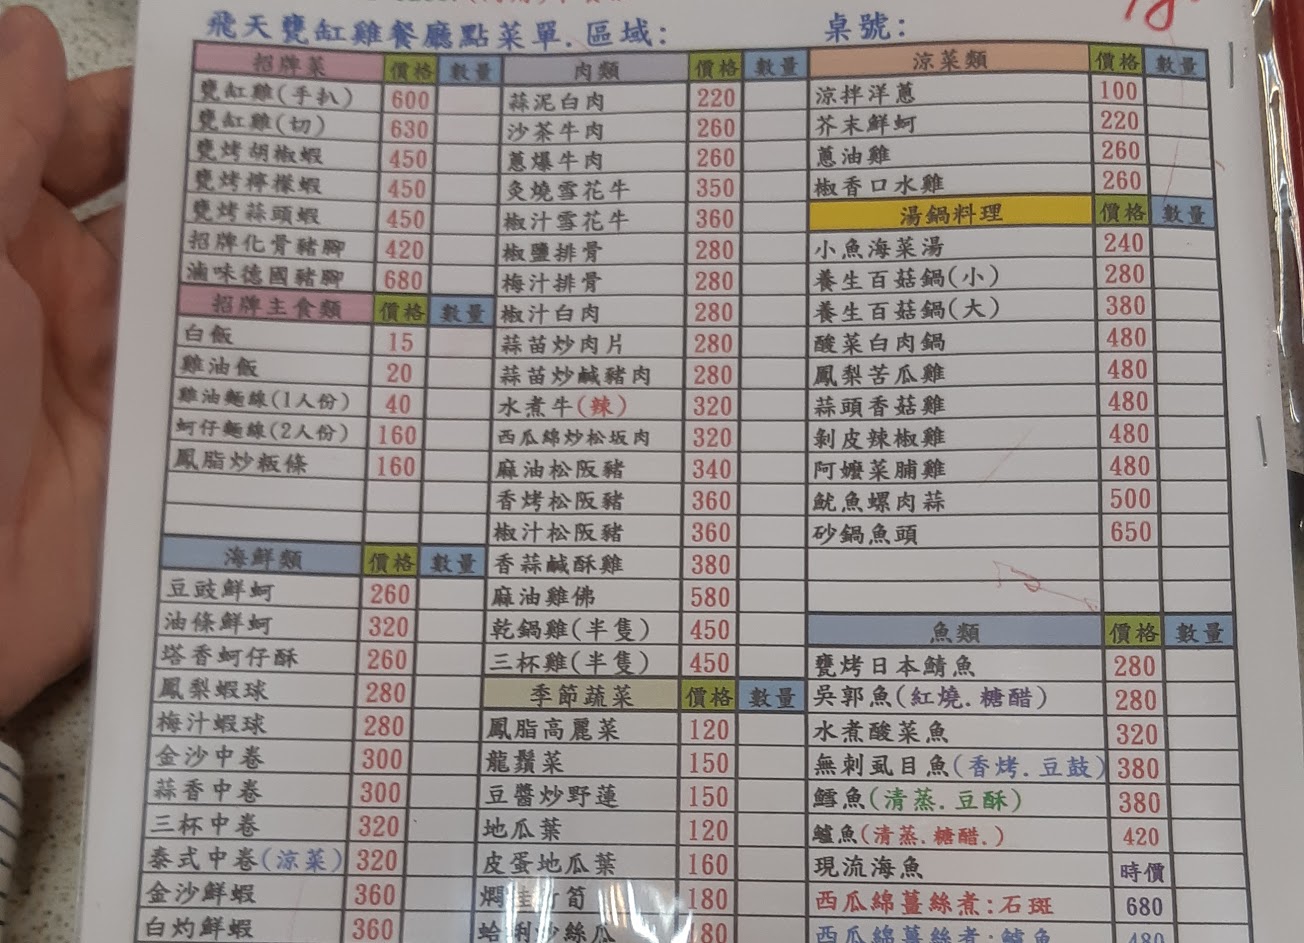 飛天甕缸雞餐廳點菜單.區域: 桌號:
招牌菜 價格 數量
甕缸雞(手扒) 600
甕缸雞(切) 630
甕烤胡椒蝦 450
甕烤檸檬蝦 450
甕烤蒜頭蝦 450
招牌化骨豬腳 420
滷味德國豬腳 680
招牌主食類 價格 數量
白飯 15
雞油飯 20
雞油麵線(1人份) 40
蚵仔麵線(2人份) 160
鳳脂炒粄條 160
海鮮類 價格 數量
豆豉鮮蚵 260
油條鮮蚵 320
塔香蚵仔酥 260
鳳梨蝦球 280
梅汁蝦球 280
金沙中卷 300
蒜香中卷 300
三杯中卷 320
泰式中卷(涼菜) 320
金沙鮮蝦 360
白灼鮮蝦 360
肉類 價格 數量
蒜泥白肉 220
沙茶牛肉 260
蔥爆牛肉 260
炙燒雪花牛 350
椒汁雪花牛 360
椒鹽排骨 280
梅汁排骨 280
椒汁白肉 280
蒜苗炒肉片 280
蒜苗炒鹹豬肉 280
水煮牛(辣) 320
西瓜綿炒松坂肉 320
麻油松阪豬 340
香烤松阪豬 360
椒汁松阪豬 360
香蒜鹹酥雞 380
麻油雞佛 580
乾鍋雞(半隻) 450
三杯雞(半隻) 450
季節蔬菜 價格 數量
鳳脂高麗菜 120
龍鬚菜 150
豆醬炒野蓮 150
地瓜葉 120
皮蛋地瓜葉 160
燜桂竹筍 180
蛤蜊炒絲瓜 180
涼菜類 價格 數量
涼拌洋蔥 100
芥末鮮蚵 220
蔥油雞 260
椒香口水雞 260
湯鍋料理 價格 數量
小魚海菜湯 240
養生百菇鍋(小) 280
養生百菇鍋(大) 380
酸菜白肉鍋 480
鳳梨苦瓜雞 480
蒜頭香菇雞 480
剝皮辣椒雞 480
阿嬤菜脯雞 480
魷魚螺肉蒜 500
砂鍋魚頭 650
魚類 價格 數量
甕烤日本鯖魚 280
吳郭魚(紅燒.糖醋) 280
水煮酸菜魚 320
無刺虱目魚(香烤.豆鼓) 380
鱈魚(清蒸.豆酥) 380
鱸魚(清蒸.糖醋.) 420
現流海魚 時價
西瓜綿薑絲煮:石斑 680
西瓜綿薑絲煮:鱸魚 480